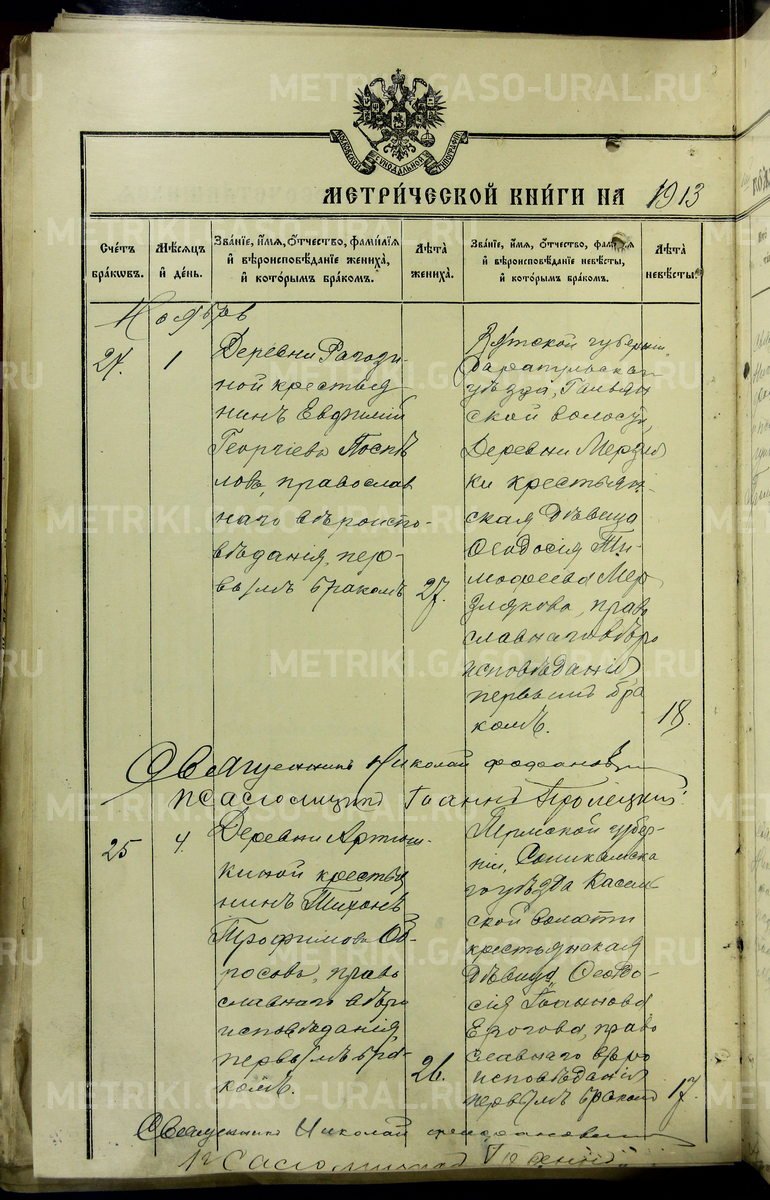 МЕТРИ́ЧЕСКОЙ КНИ́ГИ НА 1913
Сче́тъ бра́ковъ.
Мѣ́сяцъ и҆ де́нь.
Зва́нїе, и҆́мѧ, ѻ҆́тчество, фами́лїѧ и҆ вѣроисповѣ́данїе жениха̀, и҆ кото́рымъ бра́комъ.
Лѣ́та жениха̀.
Зва́нїе, и҆́мѧ, ѻ҆́тчество, фами́лїѧ и҆ вѣроисповѣ́данїе невѣ́сты, и҆ кото́рымъ бра́комъ.
Лѣ́та невѣ́сты.
Ноябрь
24.
1
Деревни Рагози-
ной крестья
нинъ Евфимій
Георгіевъ Поспѣ
ловъ, православ
наго вѣроиспо-
вѣданія, пер-
вымъ бракомъ
27.
Вятской губерніи
Сарапульскаго
уѣзда, Гольян
ской волости,
Деревни Мерзля
ки крестьян-
ская дѣвица
Ѳеодосія Ти-
мофеева Мер
злякова, право
славнаго вѣро
исповѣданія,
первымъ бра
комъ.
18.
Священникъ Николай
псаломщикъ Іоаннъ
25
4.
Деревни Артюш-
киной крестья
нинъ Тихонъ
Трофимовъ Об-
росовъ, право
славнаго вѣро
исповѣданія,
первымъ бра-
комъ.
26.
Пермской губер-
ніи, Соликамска
го уѣзда
ской волости
крестьянская
дѣвица Ѳеодо-
сія Іоаннова
право
славнаго вѣро
исповѣданія
первымъ бракомъ
17.
Священникъ Николай
Псаломщикъ
METRIKI.GASO-URAL.RU